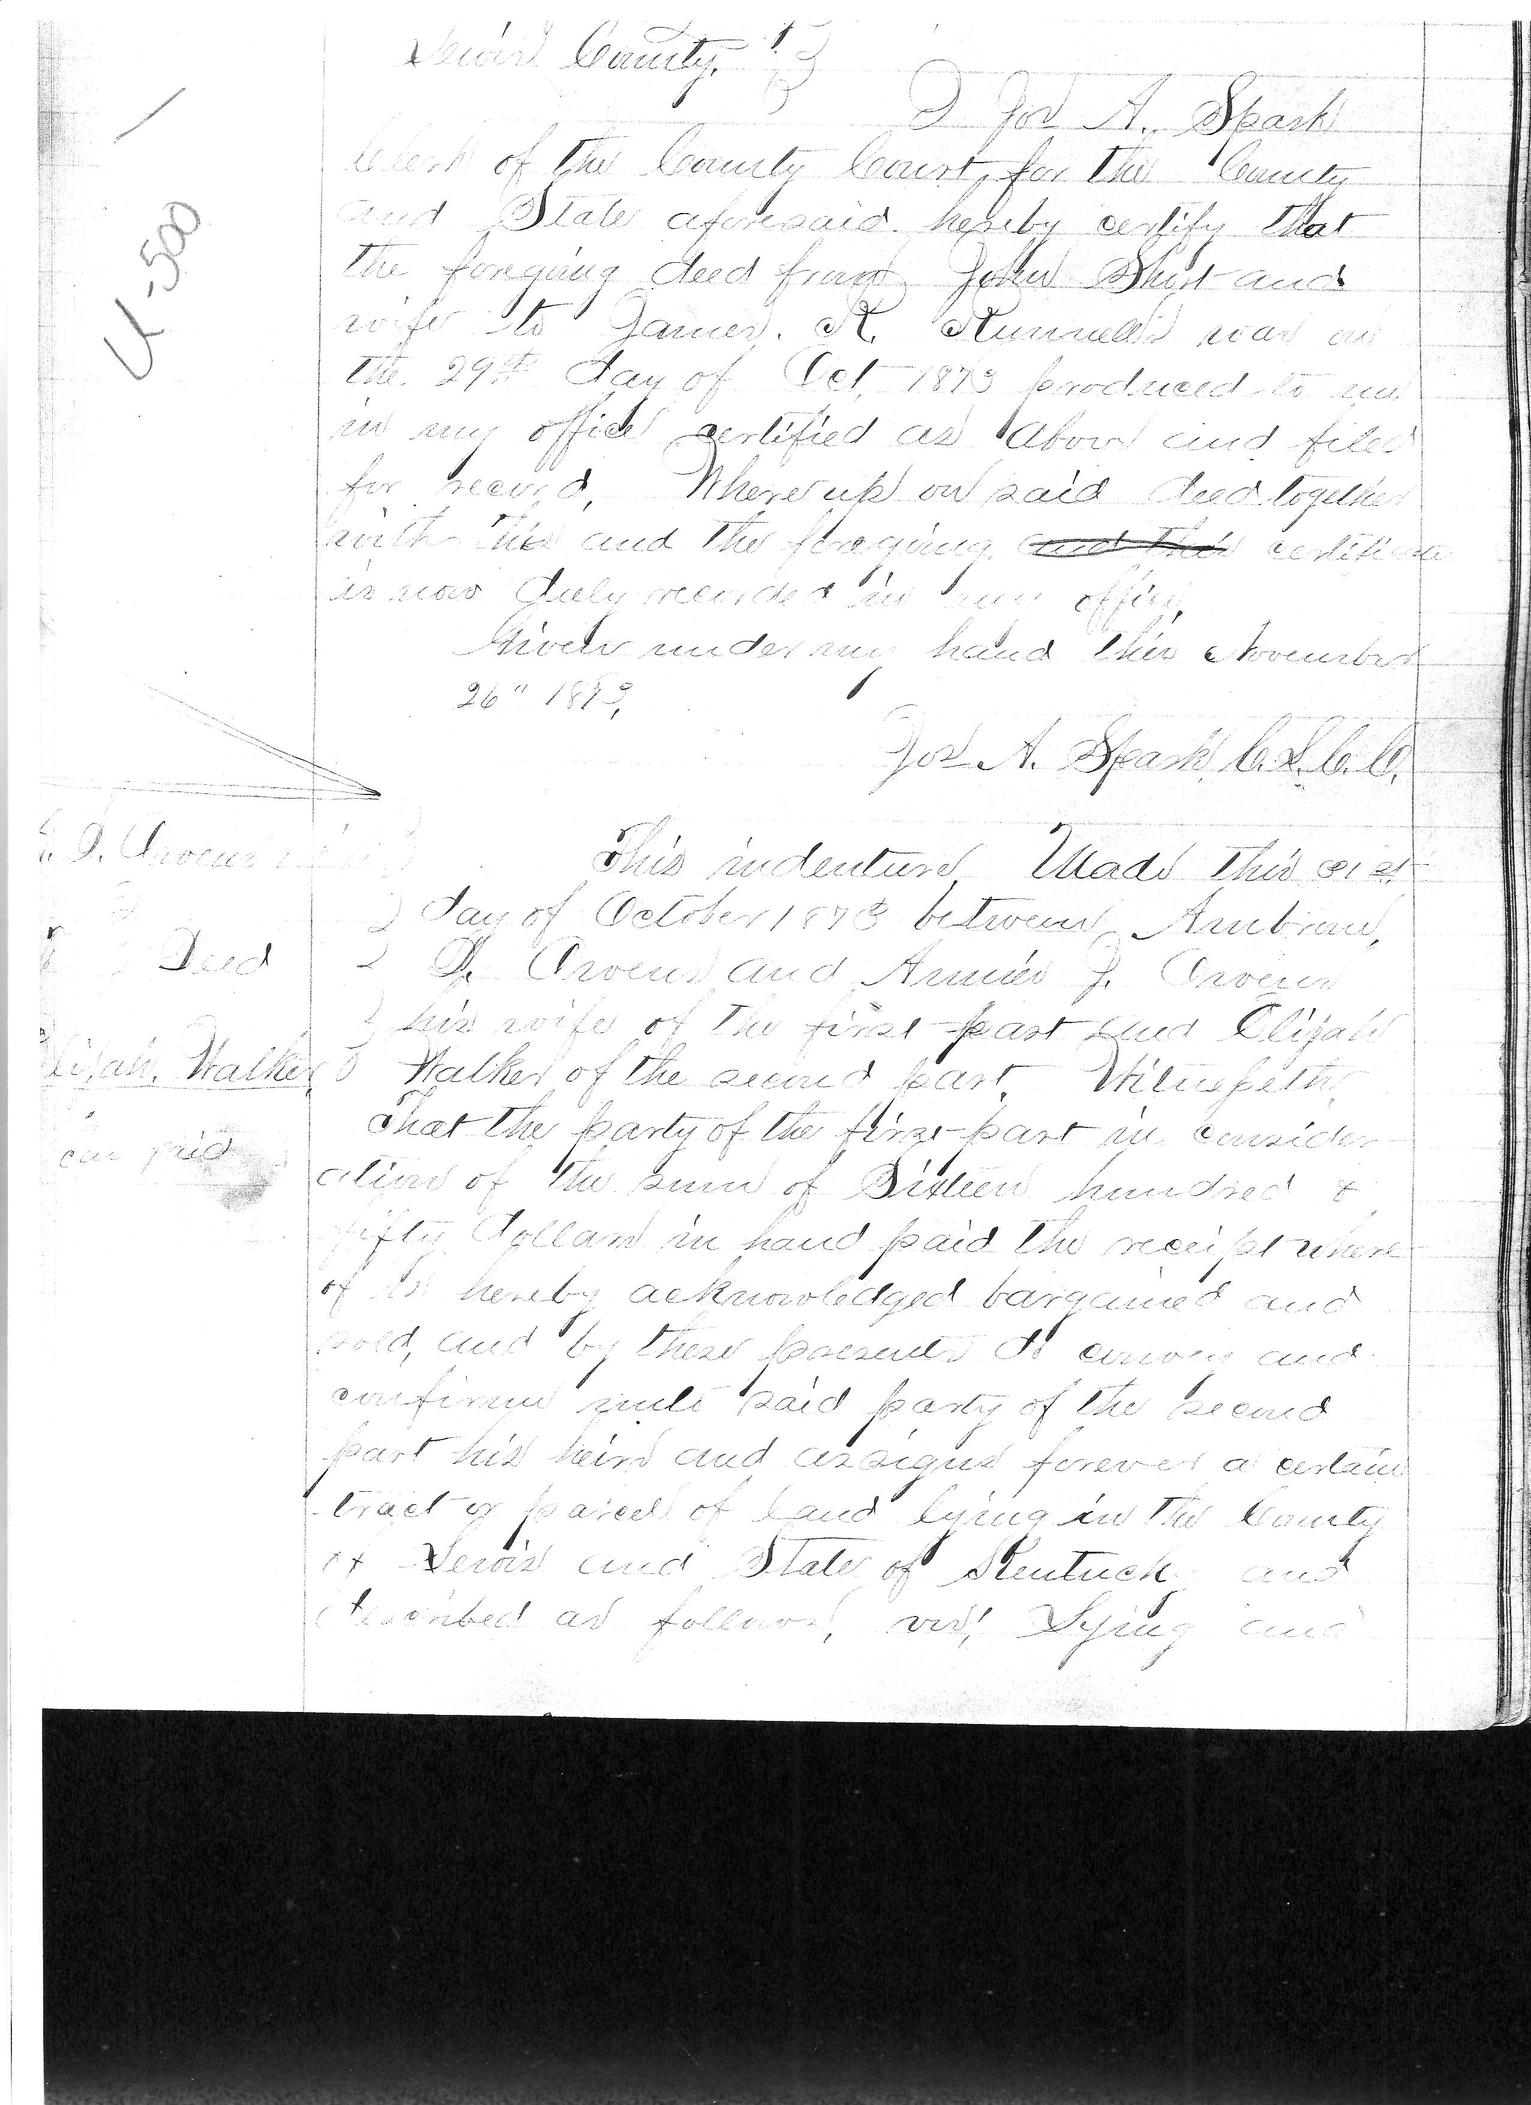 U-500
Lewis County.
I Jos A. Spark
Clerk of the County Court, for the County
and State aforesaid hereby certify that
the foregoing deed from John Short and
wife to James. R. Runnells was on
the 29th day of Oct, 1873 produced to me
in my office certified as above and filed
for record, Where up on said deed together
with this and the foregoing and this certificate
is now duly recorded in my office,
Given under my hand this November
26" 1873,
Jos A. Spark, C.L.C.C.
Owens
Deed
Elijah. Walker
paid
This indenture, Made this
day of October 1873 between
D. Owens and Annie J. Owens
his wife of the first part and Elijah
Walker of the second part, Witnesseth,
That the party of the first part in consider
ation of the sum of Sixteen hundred &
fifty dollars in hand paid the receipt where
of is hereby acknowledged bargained and
sold, and by these presents do convey and
confirm unto said party of the second
part his heirs and assigns forever a certain
tract or parcel of land lying in the County
of Lewis and State of Kentucky and
described as follows, viz! Lying and